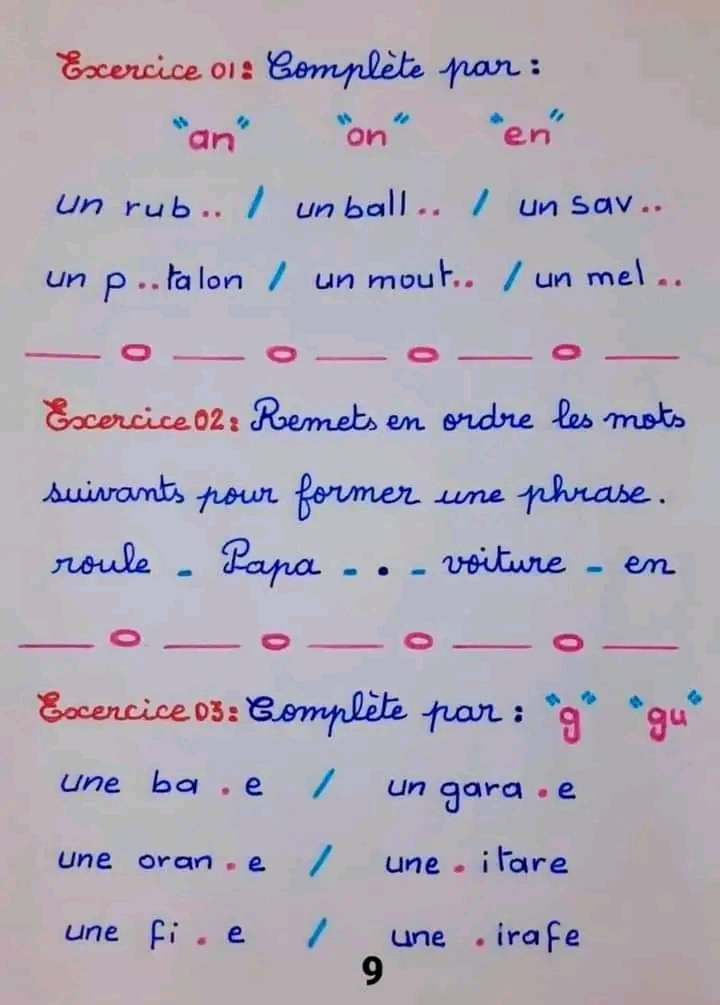 Excercice 01: Complète par :
"an" "on" "en"
un rub.. / un ball.. / un sav..
un p..talon / un mout.. / un mel..
Excercice 02: Remets en ordre les mots
suivants pour former une phrase.
roule - Papa - . - voiture - en
Excercice 03: Complète par : "g" "gu"
une ba.e / un gara.e
une oran.e / une .itare
une fi.e / une .irafe
9